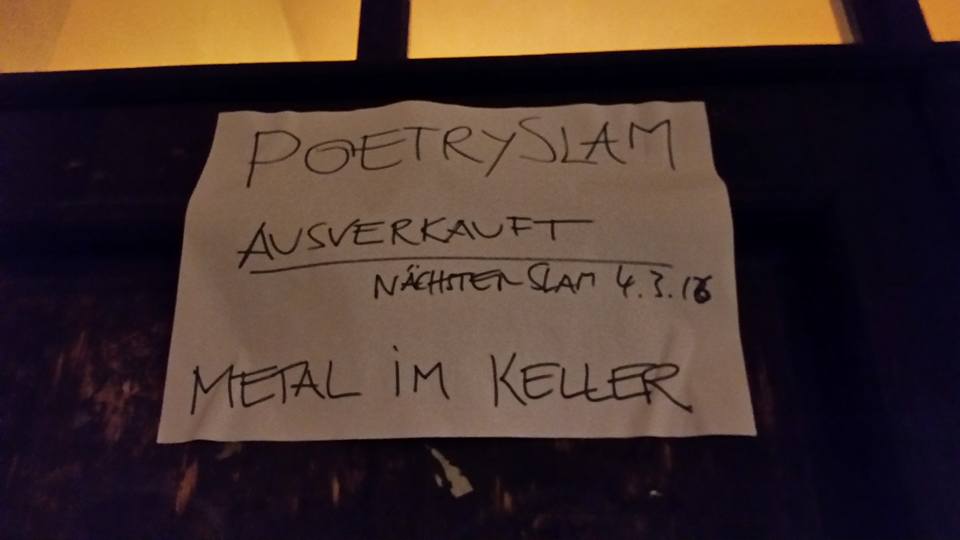 POETRYSLAM
AUSVERKAUFT
NÄCHSTER SLAM 4.3.16
METAL IM KELLER